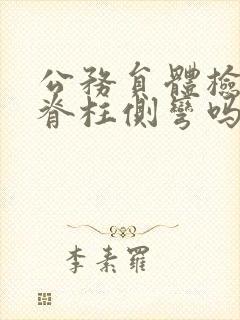 公務員體檢
脊柱側彎嗎
李素羅